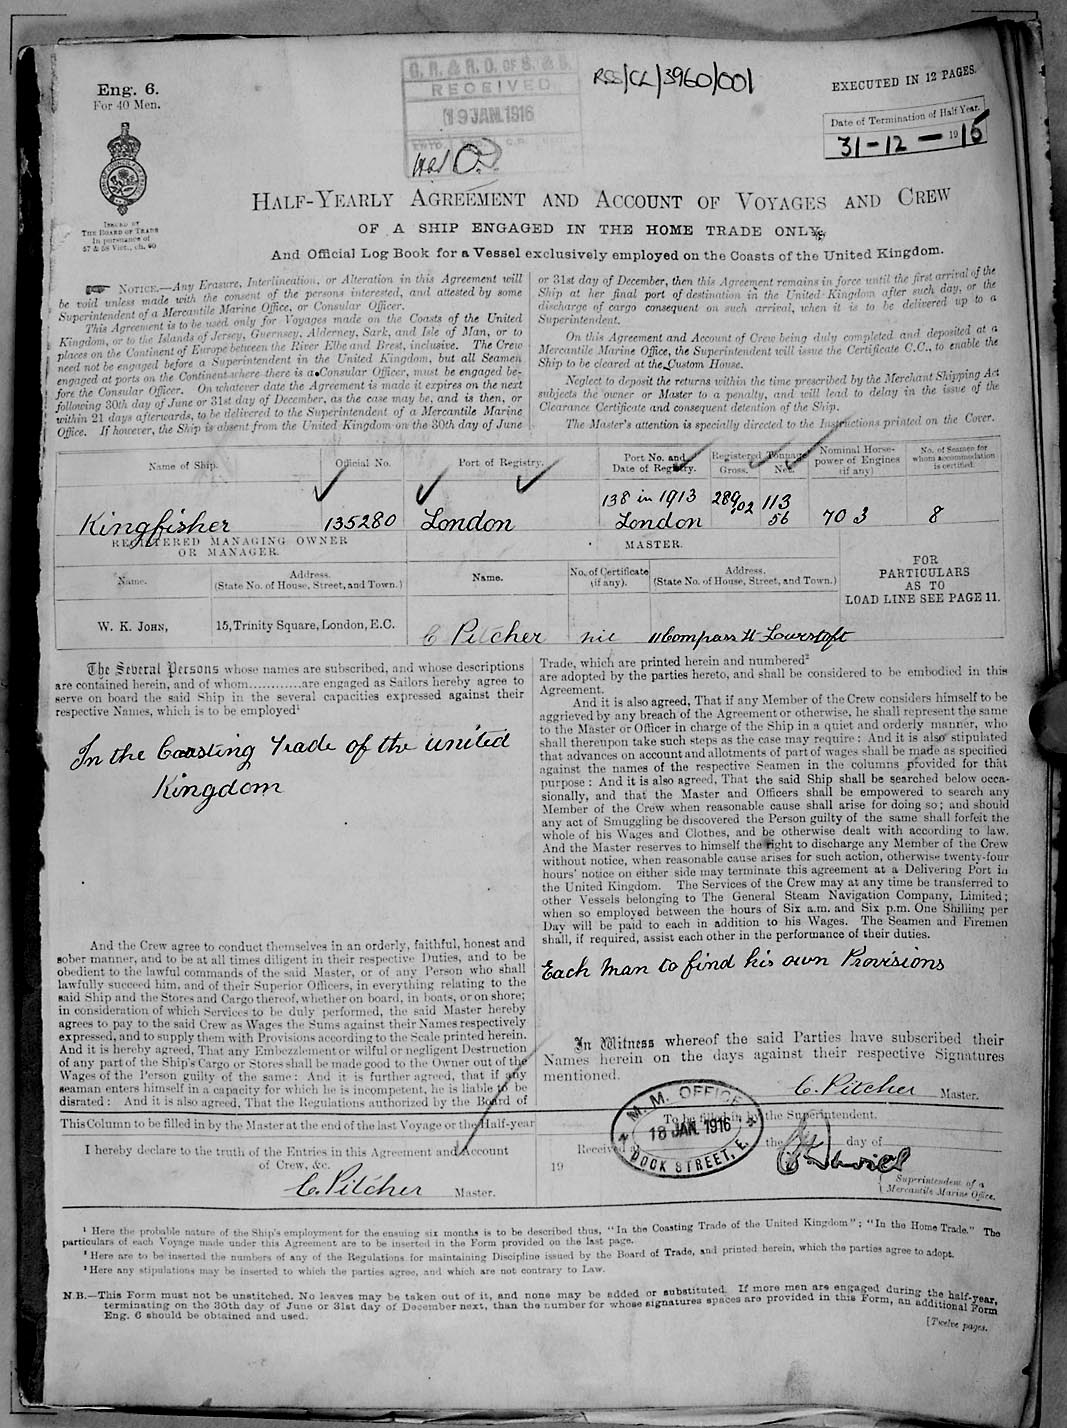 Eng. 6.
For 40 Men.
G. R. & R. O. OF S. & S.
RECEIVED
19 JAN. 1916
RSS/CL/3960/001
EXECUTED IN 12 PAGES.
Date of Termination of Half Year.
31-12-1915
ISSUED BY
THE BOARD OF TRADE
In pursuance of
57 & 58 Vict., ch. 60
HALF-YEARLY AGREEMENT AND ACCOUNT OF VOYAGES AND CREW
OF A SHIP ENGAGED IN THE HOME TRADE ONLY,
And Official Log Book for a Vessel exclusively employed on the Coasts of the United Kingdom.
NOTICE.—Any Erasure, Interlineation, or Alteration in this Agreement will
be void unless made with the consent of the persons interested, and attested by some
Superintendent of a Mercantile Marine Office, or Consular Officer.
This Agreement is to be used only for Voyages made on the Coasts of the United
Kingdom, or to the Islands of Jersey, Guernsey, Alderney, Sark, and Isle of Man, or to
places on the Continent of Europe between the River Elbe and Brest, inclusive. The Crew
need not be engaged before a Superintendent in the United Kingdom, but all Seamen
engaged at ports on the Continent where there is a Consular Officer, must be engaged be-
fore the Consular Officer. On whatever date the Agreement is made it expires on the next
following 30th day of June or 31st day of December, as the case may be, and is then, or
within 21 days afterwards, to be delivered to the Superintendent of a Mercantile Marine
Office. If however, the Ship is absent from the United Kingdom on the 30th day of June
or 31st day of December, then this Agreement remains in force until the first arrival of the
Ship at her final port of destination in the United Kingdom after such day, or the
discharge of cargo consequent on such arrival, when it is to be delivered up to a
Superintendent.
On this Agreement and Account of Crew being duly completed and deposited at a
Mercantile Marine Office, the Superintendent will issue the Certificate C.C., to enable the
Ship to be cleared at the Custom House.
Neglect to deposit the returns within the time prescribed by the Merchant Shipping Act
subjects the owner or Master to a penalty, and will lead to delay in the issue of the
Clearance Certificate and consequent detention of the Ship.
The Master's attention is specially directed to the Instructions printed on the Cover.
Name of Ship. Official No. Port of Registry. Port No. and Date of Registry. Registered Tonnage Gross. Net. Nominal Horse-power of Engines (if any) No. of Seamen for whom accommodation is certified.
138 in 1913 289.02 113
Kingfisher 135280 London London 56 70 3 8
REGISTERED MANAGING OWNER
OR MANAGER.
MASTER.
FOR
PARTICULARS
AS TO
LOAD LINE SEE PAGE 11.
Name. Address. (State No. of House, Street, and Town.) Name. No. of Certificate (if any). Address. (State No. of House, Street, and Town.)
W. K. JOHN, 15, Trinity Square, London, E.C. C Pitcher nil 11 Compass St Lowestoft
The Several Persons whose names are subscribed, and whose descriptions
are contained herein, and of whom............are engaged as Sailors hereby agree to
serve on board the said Ship in the several capacities expressed against their
respective Names, which is to be employed¹
In the Coasting Trade of the United
Kingdom
And the Crew agree to conduct themselves in an orderly, faithful, honest and
sober manner, and to be at all times diligent in their respective Duties, and to be
obedient to the lawful commands of the said Master, or of any Person who shall
lawfully succeed him, and of their Superior Officers, in everything relating to the
said Ship and the Stores and Cargo thereof, whether on board, in boats, or on shore;
in consideration of which Services to be duly performed, the said Master hereby
agrees to pay to the said Crew as Wages the Sums against their Names respectively
expressed, and to supply them with Provisions according to the Scale printed herein.
And it is hereby agreed, That any Embezzlement or wilful or negligent Destruction
of any part of the Ship's Cargo or Stores shall be made good to the Owner out of the
Wages of the Person guilty of the same: And it is further agreed, that if any
seaman enters himself in a capacity for which he is incompetent, he is liable to be
disrated: And it is also agreed, That the Regulations authorized by the Board of
Trade, which are printed herein and numbered²
are adopted by the parties hereto, and shall be considered to be embodied in this
Agreement.
And it is also agreed, That if any Member of the Crew considers himself to be
aggrieved by any breach of the Agreement or otherwise, he shall represent the same
to the Master or Officer in charge of the Ship in a quiet and orderly manner, who
shall thereupon take such steps as the case may require: And it is also stipulated
that advances on account and allotments of part of wages shall be made as specified
against the names of the respective Seamen in the columns provided for that
purpose: And it is also agreed, That the said Ship shall be searched below occa-
sionally, and that the Master and Officers shall be empowered to search any
Member of the Crew when reasonable cause shall arise for doing so; and should
any act of Smuggling be discovered the Person guilty of the same shall forfeit the
whole of his Wages and Clothes, and be otherwise dealt with according to law.
And the Master reserves to himself the right to discharge any Member of the Crew
without notice, when reasonable cause arises for such action, otherwise twenty-four
hours' notice on either side may terminate this agreement at a Delivering Port in
the United Kingdom. The Services of the Crew may at any time be transferred to
other Vessels belonging to The General Steam Navigation Company, Limited;
when so employed between the hours of Six a.m. and Six p.m. One Shilling per
Day will be paid to each in addition to his Wages. The Seamen and Firemen
shall, if required, assist each other in the performance of their duties.
Each Man to find his own Provisions
In Witness whereof the said Parties have subscribed their
Names herein on the days against their respective Signatures
mentioned.
C. Pitcher Master.
This Column to be filled in by the Master at the end of the last Voyage or the Half-year
I hereby declare to the truth of the Entries in this Agreement and Account
of Crew, &c.
C. Pitcher Master.
To be filled in by the Superintendent.
Received the day of
19
M. M. OFFICE
18 JAN. 1916
DOCK STREET, E.
Superintendent of a
Mercantile Marine Office.
¹ Here the probable nature of the Ship's employment for the ensuing six months is to be described thus, "In the Coasting Trade of the United Kingdom"; "In the Home Trade." The
particulars of each Voyage made under this Agreement are to be inserted in the Form provided on the last page.
² Here are to be inserted the numbers of any of the Regulations for maintaining Discipline issued by the Board of Trade, and printed herein, which the parties agree to adopt.
³ Here any stipulations may be inserted to which the parties agree, and which are not contrary to Law.
N.B.—This Form must not be unstitched. No leaves may be taken out of it, and none may be added or substituted. If more men are engaged during the half-year,
terminating on the 30th day of June or 31st day of December next, than the number for whose signatures spaces are provided in this Form, an additional Form
Eng. 6 should be obtained and used.
[Twelve pages.